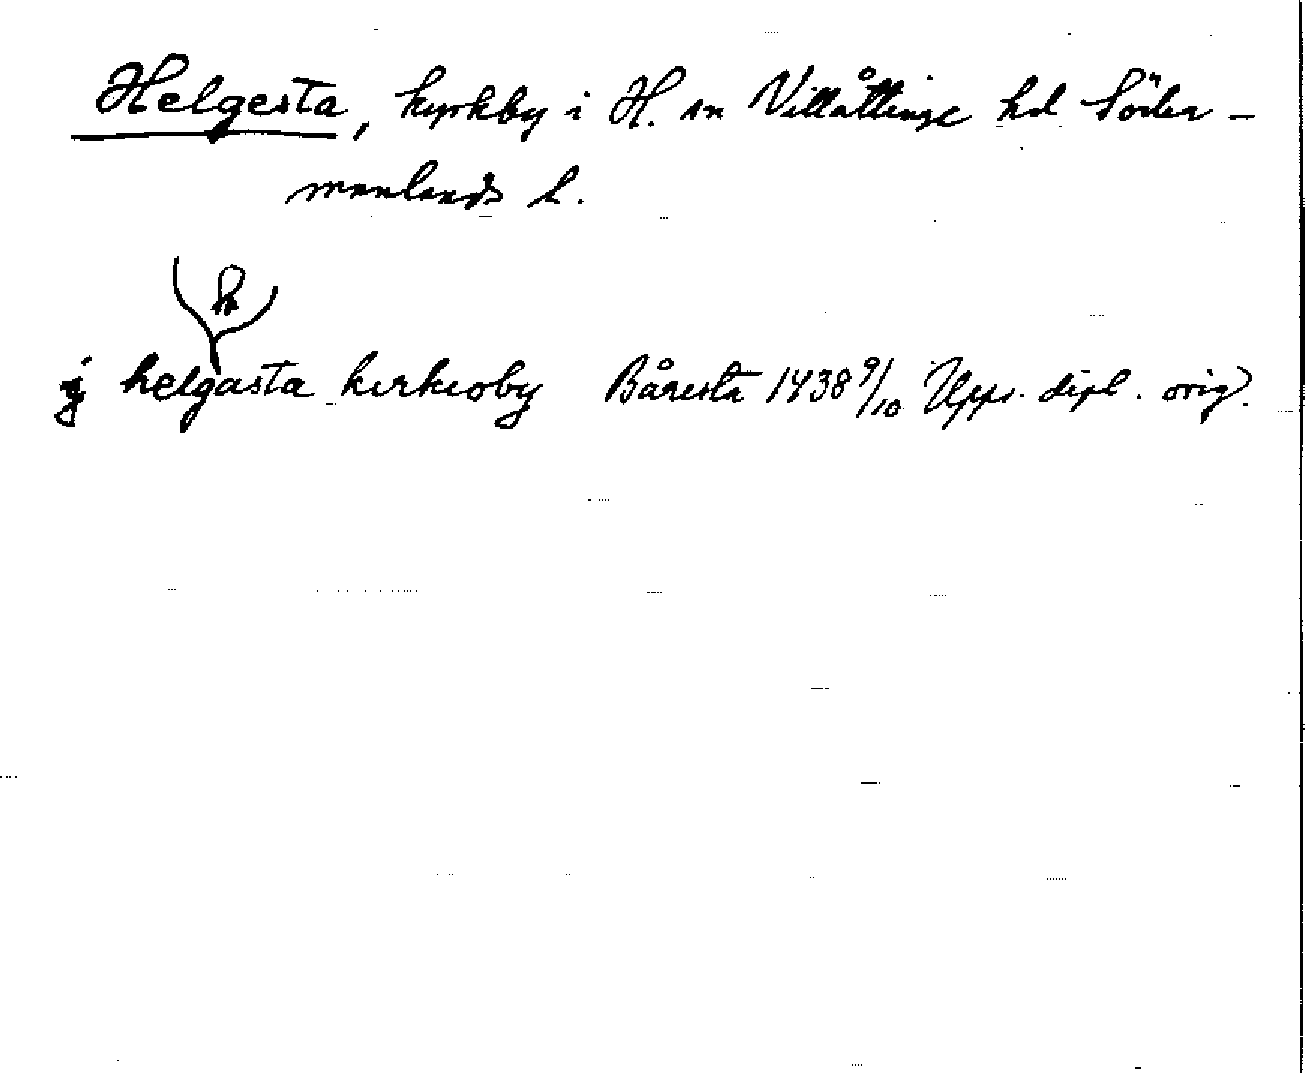 Helgesta, kyrkby i H. sn Villåttinge hd Söder-
manlands l.
h
j helgasta kirkioby Båresta 1438 9/10 Upps. dipl. orig.